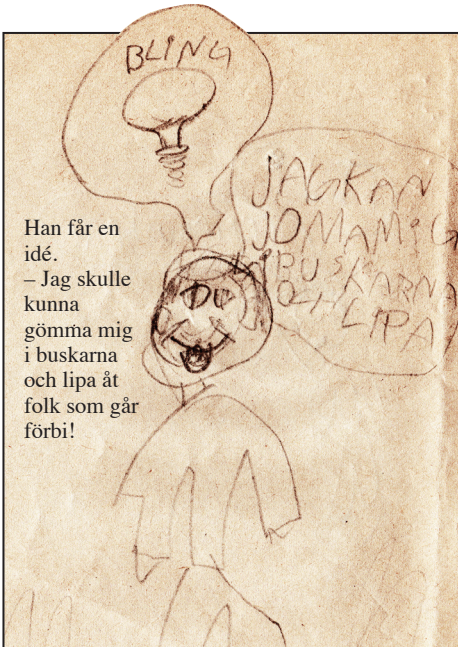 BLING
JAGKAN
JOMAMiG
i BUSKARNA
OCH
LIPA
Han får en
idé.
– Jag skulle
kunna
gömma mig
i buskarna
och lipa åt
folk som går
förbi!